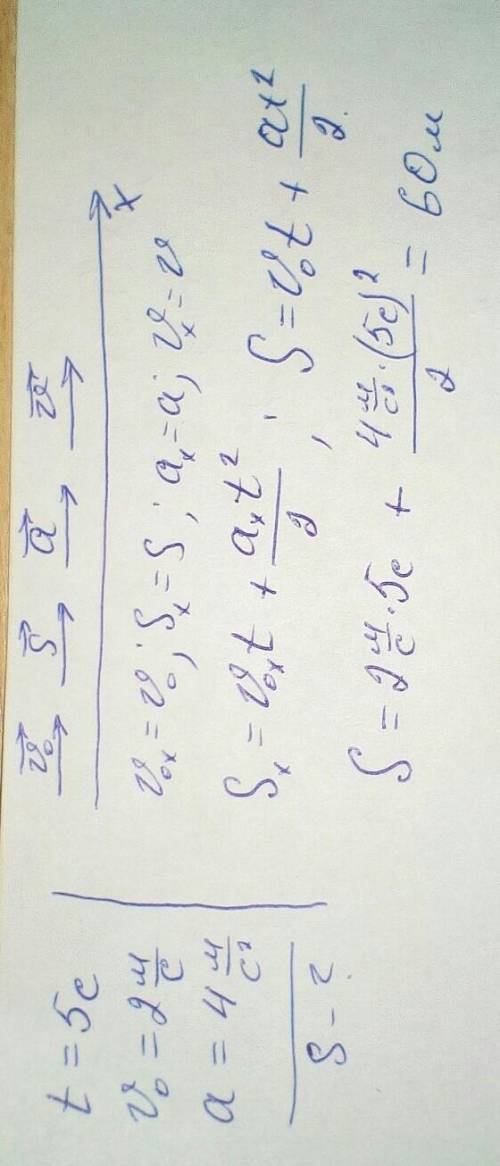 t = 5c
v₀ = 2 м/с
a = 4 м/с²
S – ?
v⃗₀ S⃗ a⃗ v⃗
x
v₀ₓ = v₀; Sₓ = S; aₓ = a; vₓ = v
Sₓ = v₀ₓt + aₓt²/2; S = v₀t + at²/2
S = 2 м/с · 5c + 4 м/с² · (5c)²/2 = 60 м